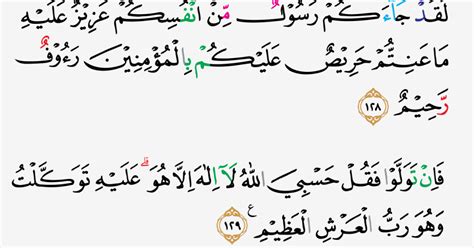 لَقَدْ جَاۤءَكُمْ رَسُوْلٌ مِّنْ اَنْفُسِكُمْ عَزِيْزٌ عَلَيْهِ
مَا عَنِتُّمْ حَرِيْصٌ عَلَيْكُمْ بِالْمُؤْمِنِيْنَ رَءُوْفٌ
رَّحِيْمٌ ١٢٨
فَاِنْ تَوَلَّوْا فَقُلْ حَسْبِيَ اللّٰهُ لَآ اِلٰهَ اِلَّا هُوَ ۗ عَلَيْهِ تَوَكَّلْتُ
وَهُوَ رَبُّ الْعَرْشِ الْعَظِيْمِ ࣖ ١٢٩